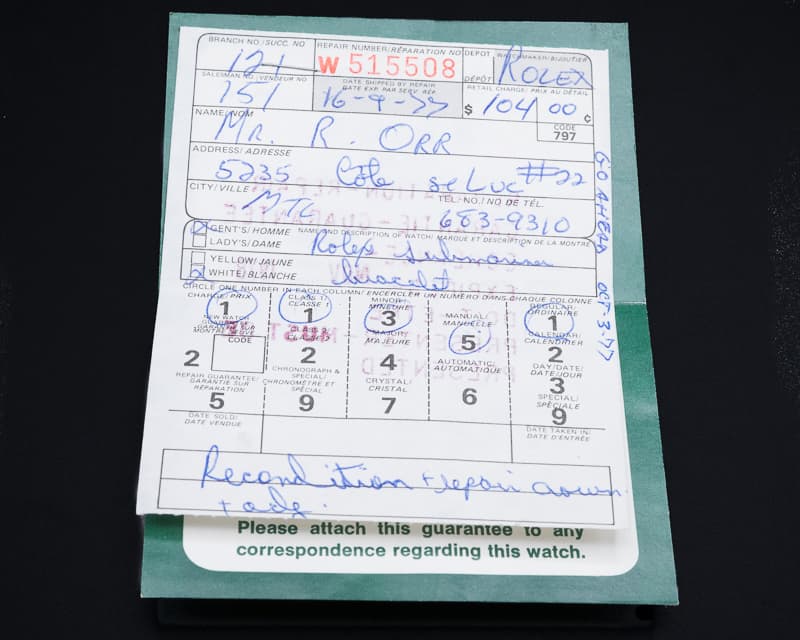 BRANCH NO./SUCC. NO
REPAIR NUMBER/RÉPARATION NO
DEPOT
WATCHMAKER/BIJOUTIER
121
W 515508
DÉPÔT
ROLEX
SALESMAN NO./VENDEUR NO
DATE SHIPPED BY REPAIR
DATE EXP. PAR SERV. RÉP.
RETAIL CHARGE/PRIX AU DÉTAIL
151
16-9-77
$ 104 00 ¢
NAME/NOM
CODE
797
MR. R. ORR
ADDRESS/ADRESSE
5235 Côte St Luc #22
CITY/VILLE
TEL. NO./NO DE TÉL.
MTL
683-9310
GO AHEAD OCT-3-77
GENT'S/HOMME
NAME AND DESCRIPTION OF WATCH/MARQUE ET DESCRIPTION DE LA MONTRE
LADY'S/DAME
Rolex Submariner
YELLOW/JAUNE
WHITE/BLANCHE
bracelet
CIRCLE ONE NUMBER IN EACH COLUMN/ENCERCLER UN NUMÉRO DANS CHAQUE COLONNE
CHARGE/PRIX
1
CLASS 1/
CLASSE 1
1
MINOR/
MINEURE
3
MANUAL/
MANUELLE
5
REGULAR/
ORDINAIRE
1
NEW WATCH
CODE
2
CLASS 2/
CLASSE 2
2
MAJOR/
MAJEURE
4
AUTOMATIC/
AUTOMATIQUE
6
CALENDAR/
CALENDRIER
2
DAY/DATE/
DATE/JOUR
3
REPAIR GUARANTEE/
GARANTIE SUR
RÉPARATION
5
CHRONOGRAPH &
SPECIAL/
CHRONOMÈTRE ET
SPÉCIAL
9
CRYSTAL/
CRISTAL
7
SPECIAL/
SPÉCIALE
9
DATE SOLD/
DATE VENDUE
DATE TAKEN IN/
DATE D'ENTRÉE
Recondition + repair crown
Please attach this guarantee to any
correspondence regarding this watch.